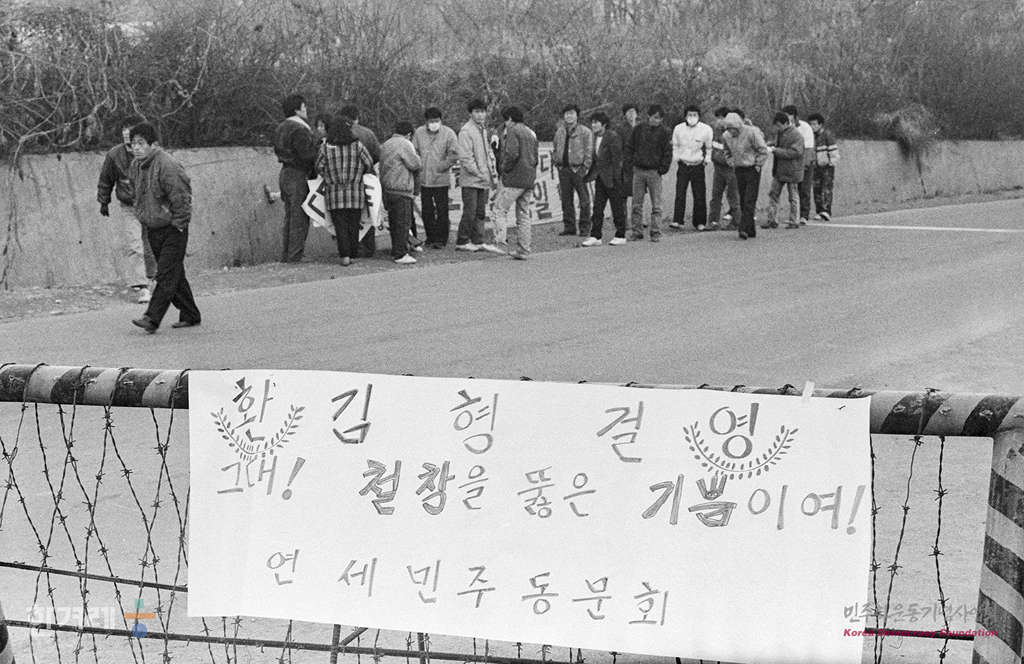 환 김형걸 영
그대! 철창을 뚫은 기쁨이여!
연세민주동문회
다
일
한겨레
민주화운동기념사업회
Korea Democracy Foundation